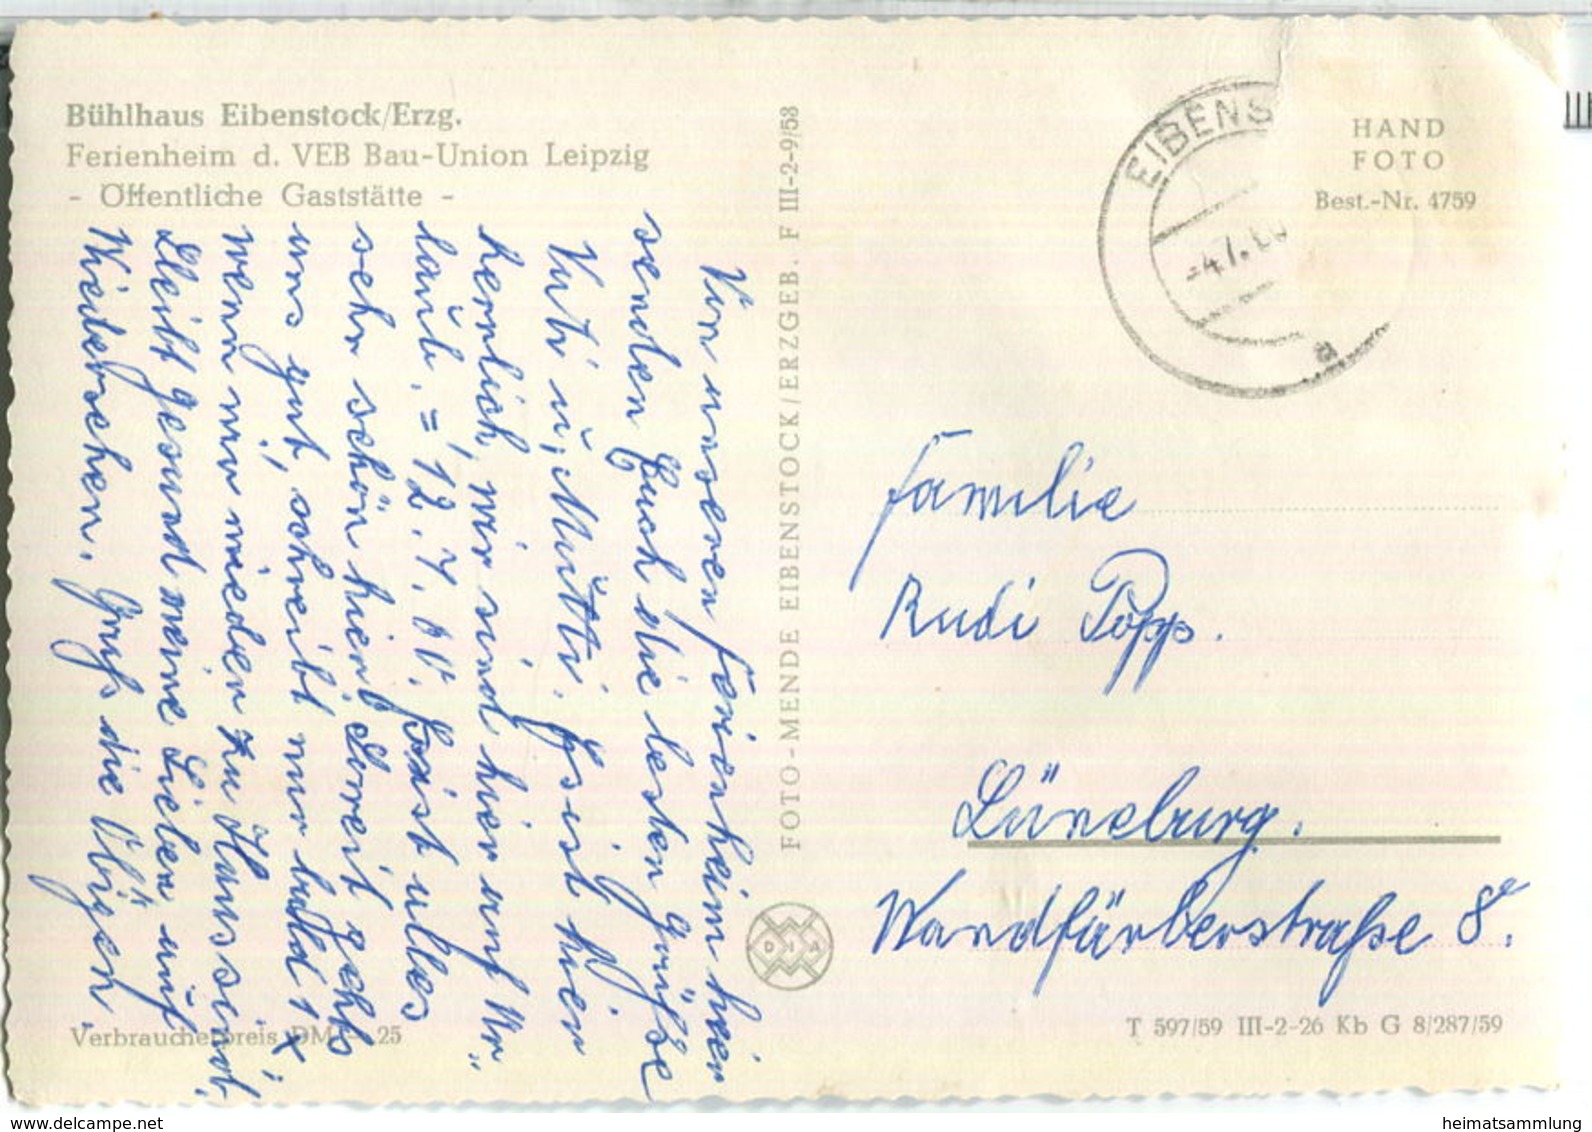 Bühlhaus Eibenstock/Erzg.
Ferienheim d. VEB Bau-Union Leipzig
- Öffentliche Gaststätte -
Von unseren Ferienheim hier
senden Euch die besten Grüße
Vati u. Mutti. Es ist hier
herrlich, wir sind hier auf Ur=
laub. = 12.7.60. Es ist alles
sehr schön hier, soweit gehts
uns gut, schreibt nur bald 1x,
wenn wir wieder zu Haus sind.
Bleibt gesund meine Lieben auf
Wiedersehen. Gruß die Obigen.
Verbraucherpreis DM -.25
FOTO-MENDE EIBENSTOCK/ERZGEB. F III-2-9/58
DIA
EIBENS
-4.7.60
a
HAND
FOTO
Best.-Nr. 4759
Familie
Rudi Popp.
Lüneburg.
Wandfärberstraße 8
T 597/59 III-2-26 Kb G 8/287/59
heimatsammlung
delcampe.net